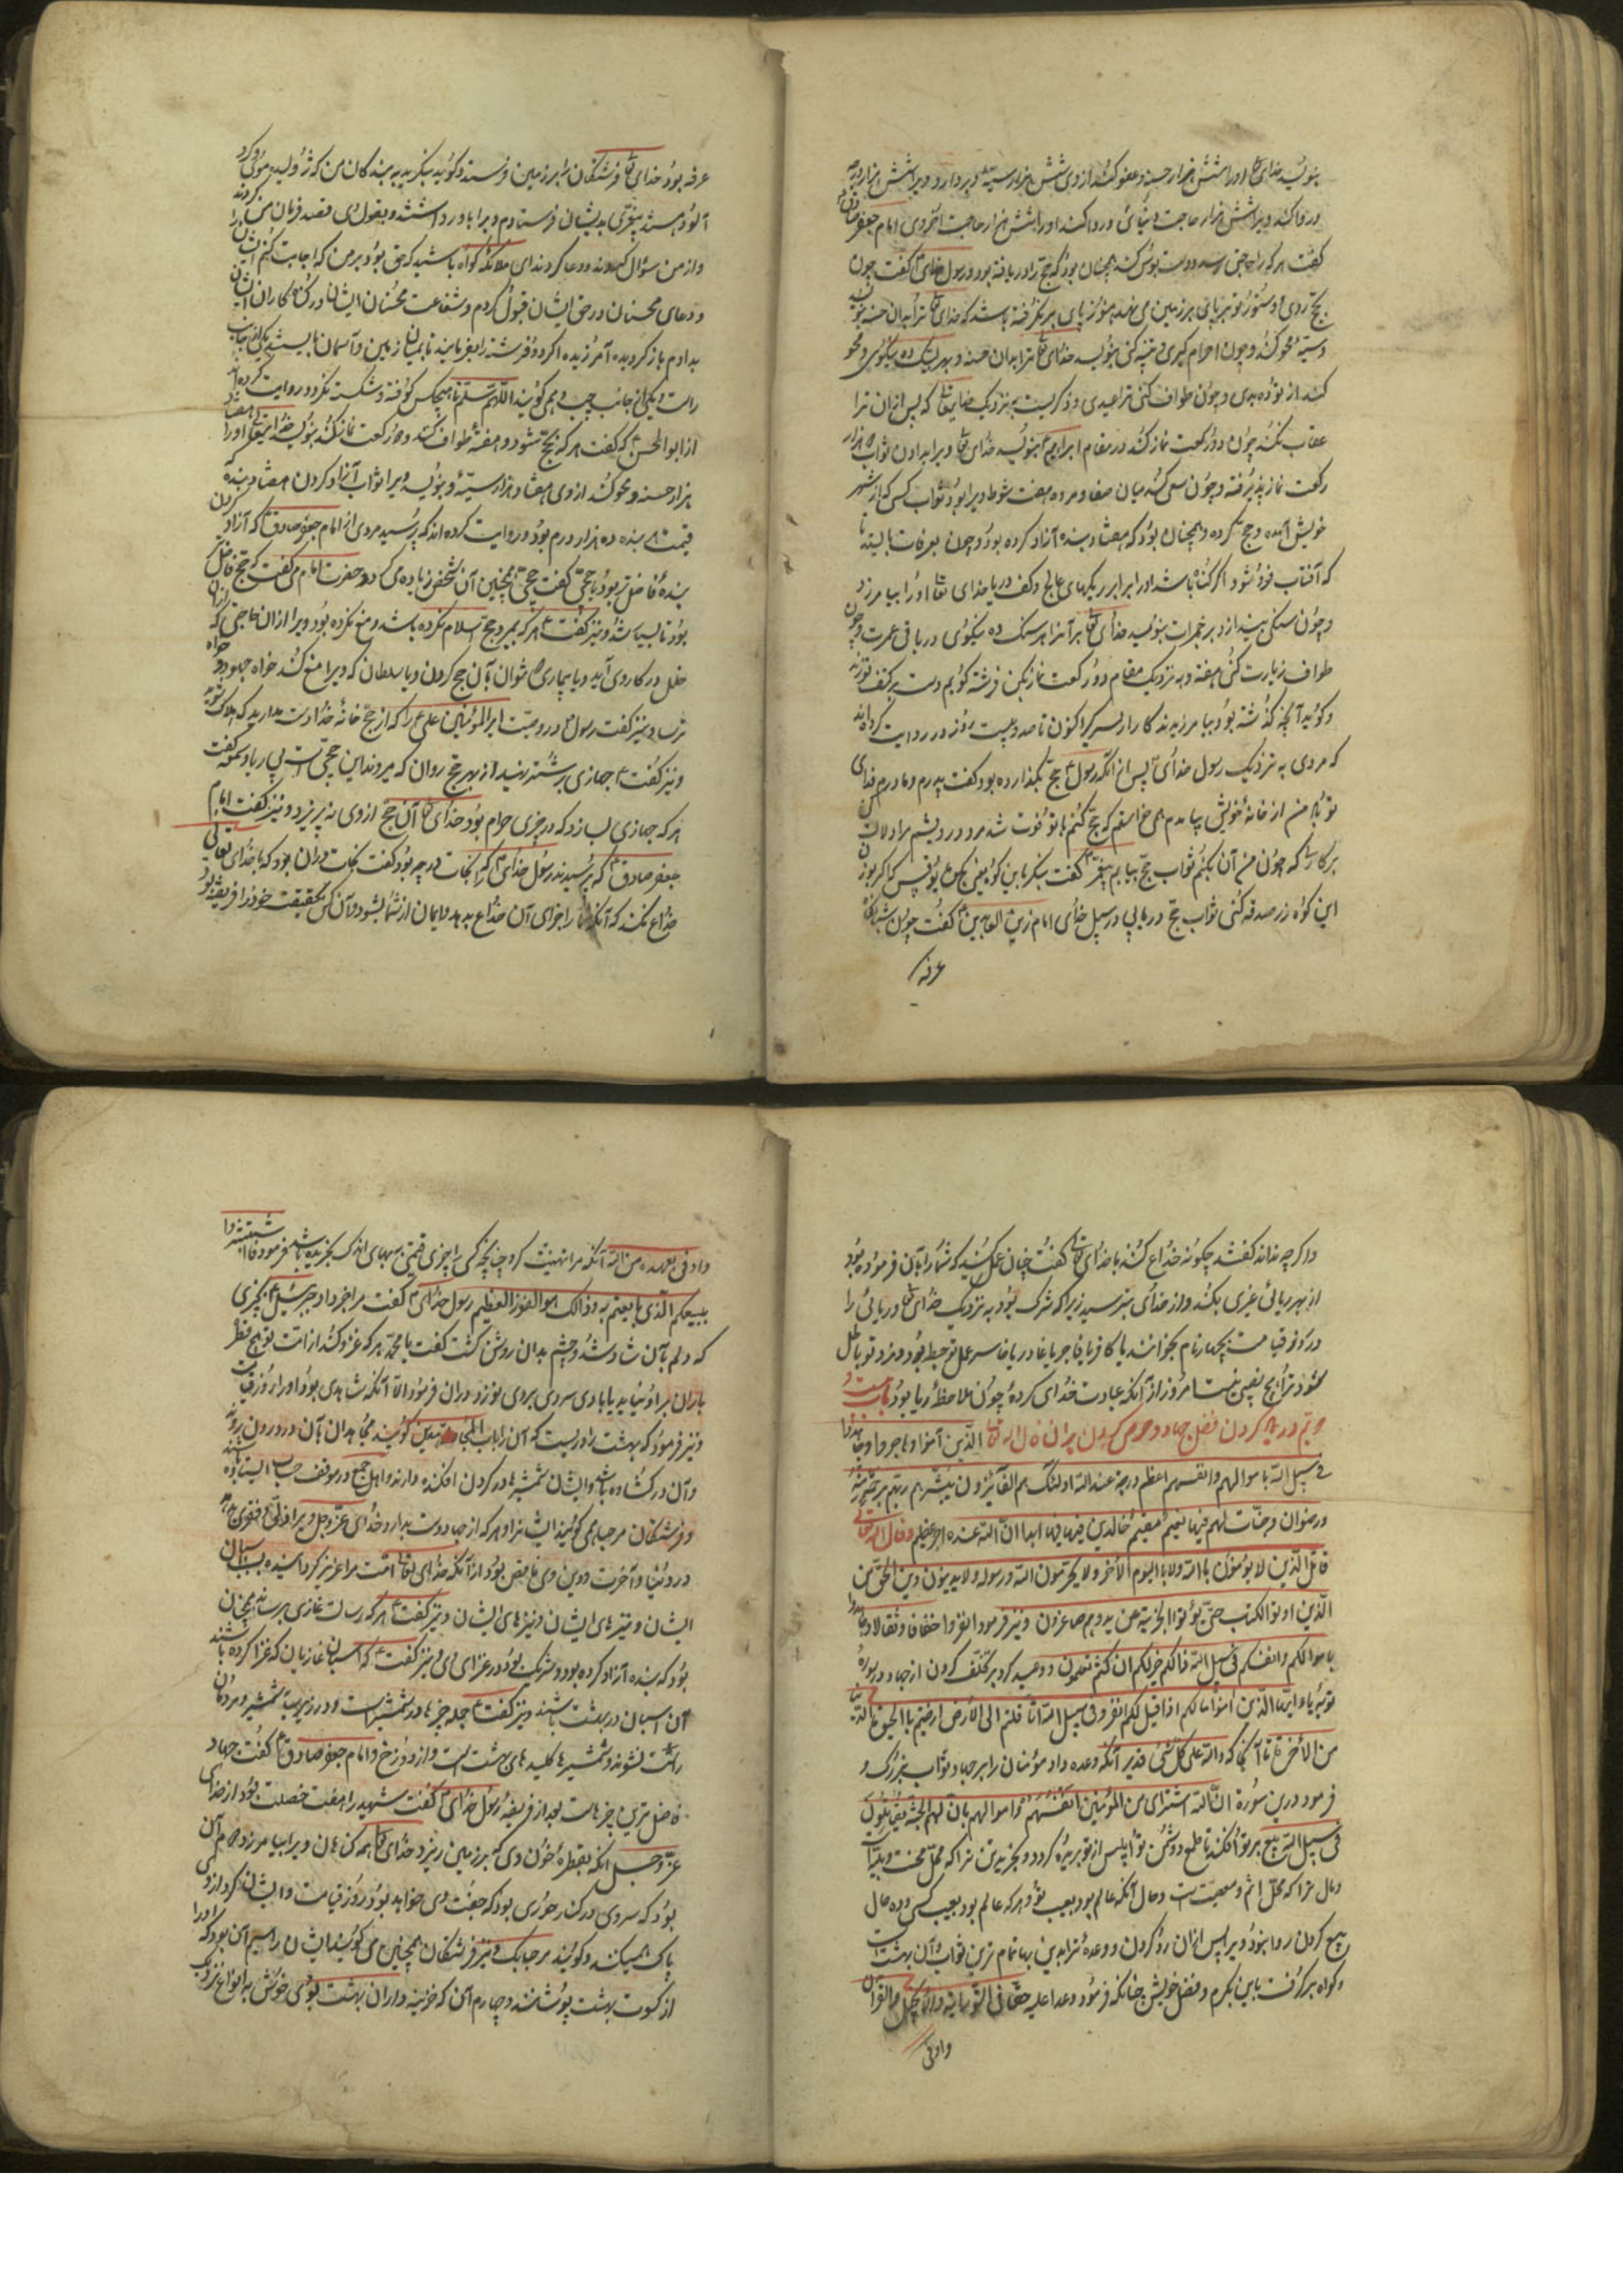 بنویسد خدای تعالی او را شش هزار حسنه و عفو کند از وی شش هزار سیئه و بردارد ویرا شش هزار درجه
و روا کند ویرا شش هزار حاجت دنیائی و روا کند او را شش هزار حاجت آخروی امام جعفر صادق
گفت هر که را حجتی رسد دوست بوش کند همچنان بود که حج را دریافته بود و رسول خدای گفت چون
بحج روی و ستور تو هر پای بر زمین می نهد هنوز پای بر نگرفته باشد که خدای تعالی ترا بدان حسنه بنویسد
و سیئه محو کند و چون احرام گیری و تلبیه کنی بنویسد خدای تعالی ترا بدان حسنه و بهر لبیک ده نیکوئی و محو
کند از تو ده بدی و چون طواف کنی ترا عهدی و ذکریست به نزدیک خدایتعالی که پس از آن ترا
عقاب نکند چون دو رکعت نماز کند در مقام ابراهیم بنویسد خدای تعالی ویرا بدان ثواب هزار
رکعت نماز پذیرفته و چون سعی کند میان صفا و مروه هفت شوط ویرا بود ثواب کسی که از شهر
خویش آمده و حج کرده و همچنان بود که هفتاد بنده آزاد کرده بود و چون بعرفات بایستد تا
که آفتاب فرو شود اگر گناه باشد او را برابر ریگهای عالج و کف دریا خدای تعالی او را بیامرزد
و چون سنگی بیندازد بر جمرات بنویسد خدای تعالی برآنرا هر سنگ ده نیکوی در باقی عمرت و چون
طواف زیارت کنی هفته و به نزدیک مقام دو رکعت نماز بکنی فرشته گویم دست بر کتف تو زند
و گوید آنچه گذشته بود بیامرزیدند کار از سر گیر اکنون تا صد و بیست روز در روایت کرده اند
که مردی به نزدیک رسول خدای پس از آنکه رسول حج بگذارده بود گفت پدرم و مادرم فدای
تو باد من از خانه خویش بیامدم می خواستم که حج کنم با تو فوت شد مرد درویشم مرا دلالت کن
بر کاری که چون من آن بکنم ثواب حج بیابم پیغمبر گفت بنگر باین کوه یعنی کوه بوقبیس که اگر بوزن
این کوه زر صدقه کنی ثواب حج در نیابی در سبیل خدای امام زین العابدین گفت چون شبانگاه
عرفه
عرفه بود خدای تعالی فرشتگان را بر زمین فرستد و گوید بنگرید به بندگان من که ژولیده موی و گرد
آلود هستند پیغمبری بدیشان فرستادم ویرا باور داشتند و بقول وی قصد فرمان من کردند
و از من سؤال کردند و دعا کردند ای ملائکه گواه باشید که حق بود بر من که اجابت کنم ایشان را
و دعای محسنان در حق ایشان قبول کردم و شفاعت محسنان ایشان در گناه کاران ایشان
بدادم باز گردید آمرزیده اگر دو فرشته را بفرمایند تا بمیان زمین و آسمان بایستند یکی از جانب
راست و یکی از جانب چپ و می گویند اللهم سلم تا هیچکس کوفته و شکسته نگردد و روایت کرده اند
از ابو الحسن که گفت هر که بحج شود و هفته طواف کند و دو رکعت نماز کند بنویسد خدایتعالی او را هفتاد
هزار حسنه و محو کند از وی هفتاد هزار سیئه و بنویسد ویرا ثواب آزاد کردن هفتاد بنده که
قیمت هر بنده ده هزار درم بود و روایت کرده اند که پرسید مردی از امام جعفر صادق که آزاد کردن
بنده فاضل تر بود یا حجی گفت حجی همچنین آن شخص زیاده می کرد و حضرت امام می گفت که حج فاضل
بود تا بسیار شد و نیز گفت هر که بمیرد و حج اسلام نکرده باشد و منع نکرده بود ویرا از آن حاجتی که
خلل در کار وی آید و یا بیماری که نتوان با آن حج کردن و یا سلطان که ویرا منع کند خواه جهود و خواه
ترسا و نیز گفت رسول در وصیت امیر المؤمنین علی را که از حج خانه خدا دست مدارید که هلاک شوید
و نیز گفت جهازی برشتر نهید از بهر حج روان که میروند این حجی است بی ریا و سمعه گفت
هر که جهازی بسازد که در چیزی حرام بود خدای تعالی آن حج از وی نپذیرد و نیز گفت امام
جعفر صادق که پرسیدند رسول خدای را که نجات در چه بود گفت نجات در آن بود که با خدای تعالی
خداع نکند که آنکه را جزای آن خداع بدهد و ایمان از شما بشود و آن کس بحقیقت خود را فریفته بود
و اگر چه نداند گفتند چگونه خداع کنند با خدای تعالی گفت چنان عمل کنید که شما را بآن فرموده بود
از بهر ریائی غیری بکند و از خدای بترسید زیرا که شرک بود به نزدیک خدای تعالی و ریائی را
در روز قیامت بچهار نام بخوانند یا کافر یا فاجر یا غادر یا خاسر عمل تو حبط بود و مزد تو باطل
شود ترا هیچ نصیبی نیست امروز از آنکه عبادت خدای کرده چون ملاحظه ریا بود باب بیست و
در یاد کردن فضل جهاد و حرص کردن بر آن قال الله تعالی الذین آمنوا و هاجروا و جاهدوا
فی سبیل الله باموالهم و انفسهم اعظم درجة عند الله اولئک هم الفائزون یبشرهم ربهم برحمة منه
و رضوان و جنات لهم فیها نعیم مقیم خالدین فیها ابدا ان الله عنده اجر عظیم و قال الله تعالی
قاتلوا الذین لا یؤمنون بالله ولا بالیوم الآخر ولا یحرمون الله و رسوله ولا یدینون دین الحق من
الذین اوتوا الکتب حتی یؤتوا الجزیة عن ید وهم صاغرون و نیز فرمود انفروا خفافا و ثقالا و جاهدوا
باموالکم و انفسکم فی سبیل الله ذالکم خیر لکم ان کنتم تعلمون و وعید کرد بر تخلف کردن از جهاد در سوره
توبه یا ایها الذین آمنوا ما لکم اذا قیل لکم انفروا فی سبیل الله اثاقلتم الی الارض ارضیتم بالحیوة الدنیا
من الاخرة تا آنجا که والله علی کل شیء قدیر آنکه وعده داد مؤمنان را بر جهاد ثواب بزرگ و
فرمود درین سوره ان الله اشتری من المؤمنین انفسهم و اموالهم بان لهم الجنة یقاتلون
فی سبیل الله بیع بر تو افکند تا طمع دشمن تو ابلیس از تو بریده گردد و بخرید تن ترا که محل محنت و بلیتست
و مال ترا که محل اثم و معصیت است و حال آنکه عالم بود بعیب تو و هر که عالم بود بعیب کسی در حال
بیع کردن روا نبود ویرا پس از آن رد کردن و وعده ترا بدین بها تمام ترین ثواب آن بهشت است
و گواه برگرفت باین بکرم و فضل خویش چنانکه فرمود وعدا علیه حقا فی التوریة والانجیل والقرآن
و اوفی
و اوفی بعهده من الله آنکه مرا تهنیت کرد چنانچه کسی را چیزی قیمتی ببهای اندک بخریده باشد فرمود فاستبشروا
ببیعکم الذی بایعتم به و ذالک هو الفوز العظیم رسول خدای گفت مرا خبر داد جبرئیل بچیزی
که دلم بآن شاد شد و چشم بدان روشن گشت گفت یا محمد هر که غزو کند از امت تو هیچ قطر
باران بر او نیاید یا بادی سردی بروی نوزد در آن فرمود الا آنکه شاهدی بود او را روز قیامت
و نیز فرمود که بهشت را دریست که آن را باب المجاهدین گویند مجاهدان بآن در درون روند
و آن در گشاده باشد و ایشان شمشیرها در گردن افکنده دارند و اهل جمع در موقف حساب ایستاده
و فرشتگان مرحبا می گویند ایشانرا و هر که از جهاد دست بدارد خدای عز و جل ویرا ذلتی و فقری دهد
در دنیا و آخرت و دین وی ناقص بود از آنکه خدای تعالی امت مرا عزیز کرد بسبب اسبان
ایشان و تیرهای ایشان و نیزهای ایشان و نیز گفت هر که رسالت غازی برساند همچنان
بود که بنده آزاد کرده بود و شریک بود در غزای وی و نیز گفت که اسبان غازیان که غزا کرده باشند
آن اسبان در بهشت باشند و نیز گفت جمله چیزها در شمشیر است و در زیر سایه شمشیر و مردمان
راست نشوند و شمشیرها کلیدهای بهشت است و از دوزخ و امام جعفر صادق گفت جهاد
فاضل ترین چیزهاست بعد از فریضه رسول خدای گفت شهید را هفت خصلت بود از خدای
عز و جل آنکه بقطره خون وی که بر زمین ریزد خدای تعالی همه گناهان ویرا بیامرزد دوم آن
بود که سر وی در کنار حوری بود که جفت وی خواهد بود روز قیامت و ایشان گرد از وی
پاک میکنند و گویند مرحبا بک و نیز فرشتگان همچنین می گویند ایشان را سیم آن بود که او را
از کسوت بهشت پوشانند و چهارم آن که خزینه داران بهشت بوی خوش به انواع نزدیک